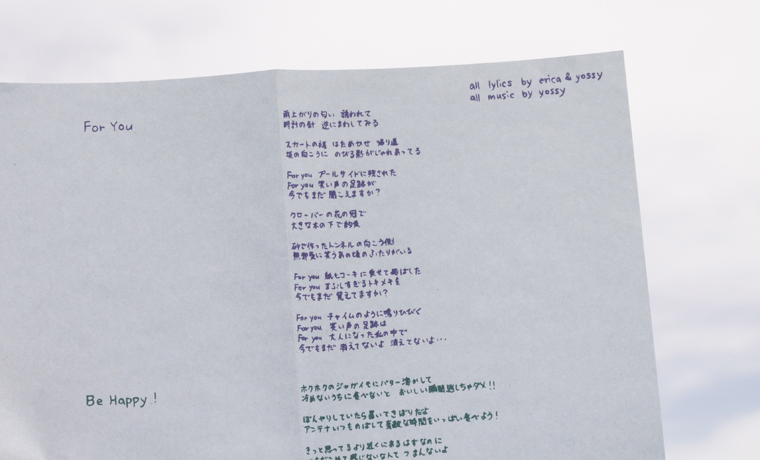 all lylics by erica & yossy
all music by yossy
For You
雨上がりの匂い 誘われて
時計の針 逆にまわしてみる
スカートの裾 はためかせ 帰り道
坂の向こうに のびる影がじゃれあってる
For you プールサイドに残された
For you 笑い声の足跡が
今でもまだ 聞こえますか?
クローバーの花の冠で
大きな木の下で約束
砂で作ったトンネルの向こう側
無邪気に笑うあの頃のふたりがいる
For you 紙ヒコーキに乗せて飛ばした
For you まぶしすぎるトキメキを
今でもまだ 覚えてますか?
For you チャイムのように鳴りひびく
For you 笑い声の足跡は
For you 大人になった私の中で
今でもまだ 消えてないよ 消えてないよ…
Be Happy!
ホクホクのジャガイモにバター溶かして
冷めないうちに食べないと おいしい瞬間逃しちゃダメ!!
ぼんやりしていたら置いてきぼりだよ
アンテナいつものばして素敵な時間をいっぱい食べよう!
きっと思ってるより近くにあるはずなのに
感じないなんて つまんないよ